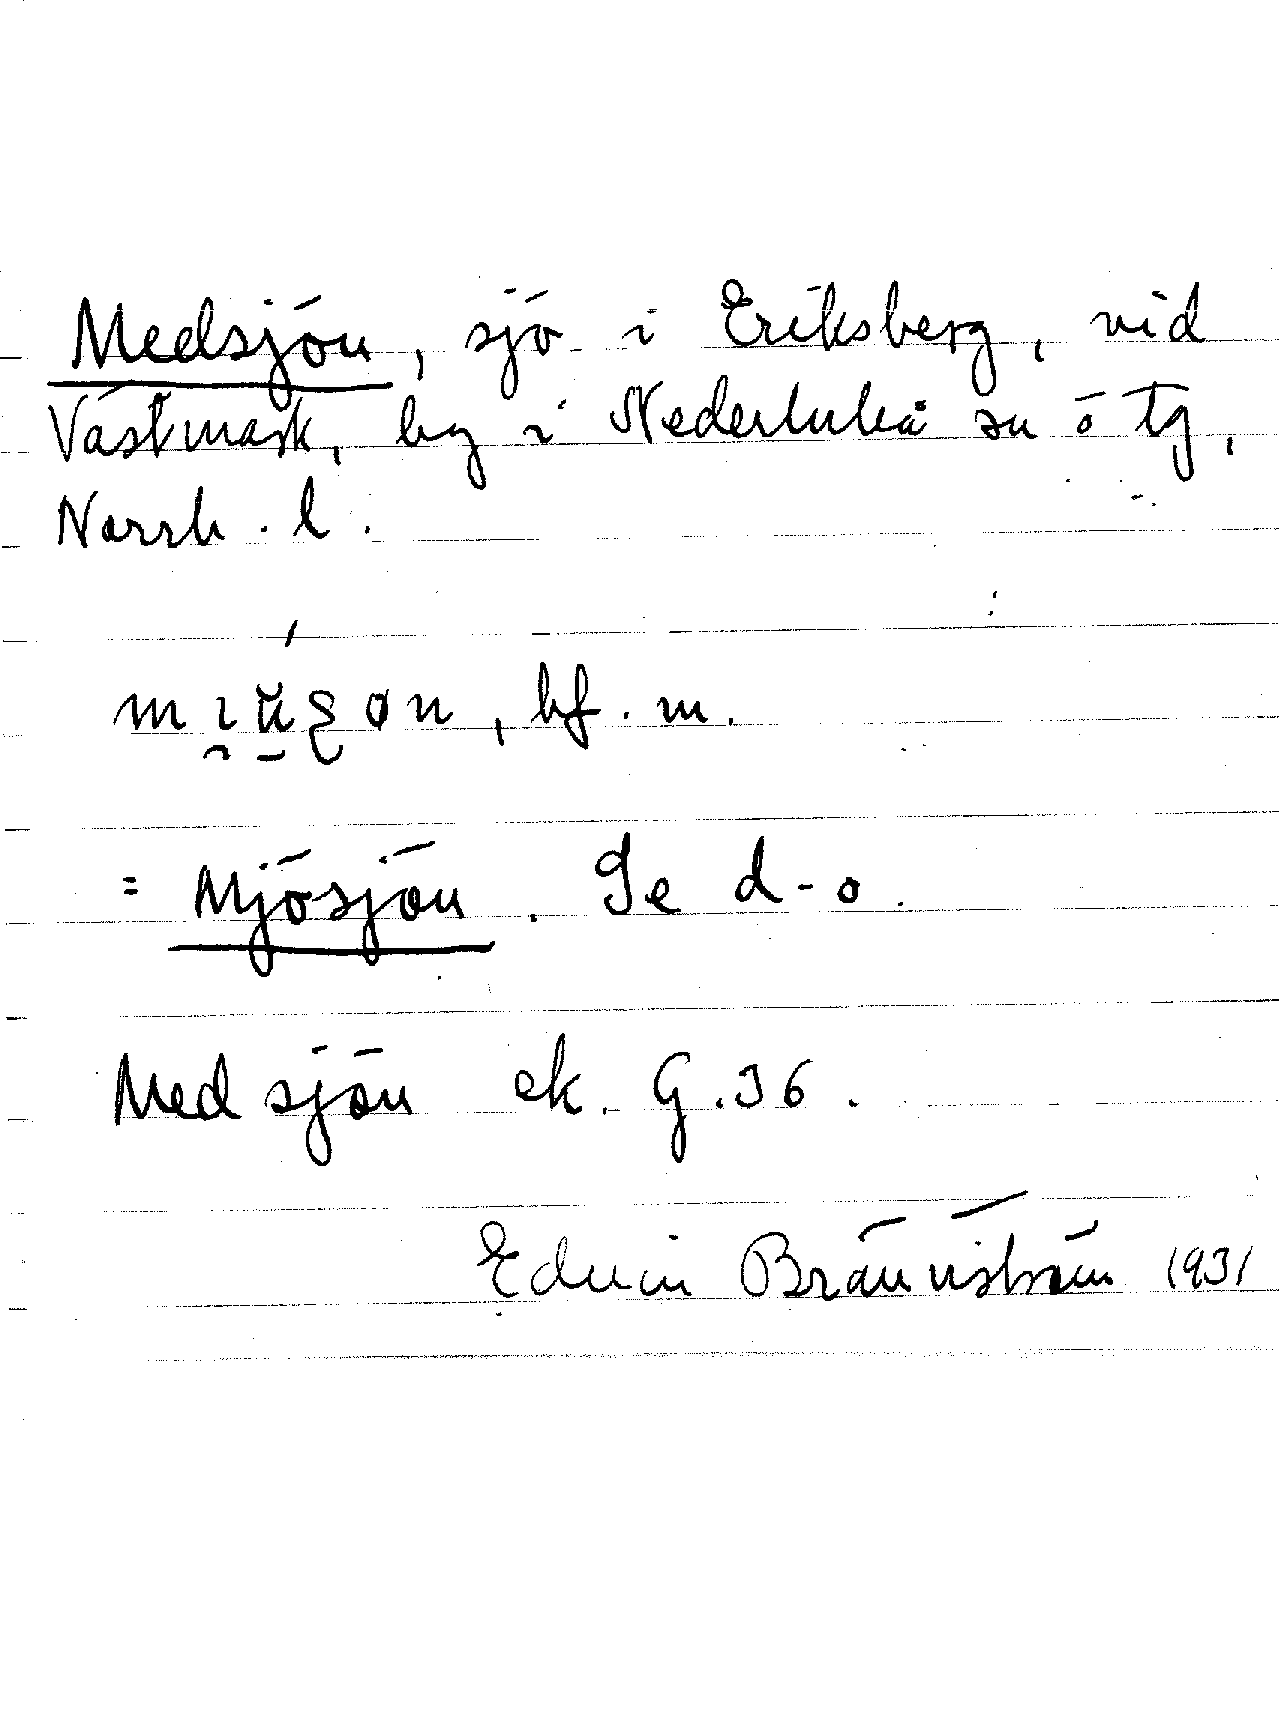 Medsjön, sjö i Eriksberg, vid
Västmark, by i Nederluleå sn o tg,
Norrb. l.
bf. m.
= Mjösjön. Se d-o.
Medsjön ek. G. 36.
Edvin Brännström 1931